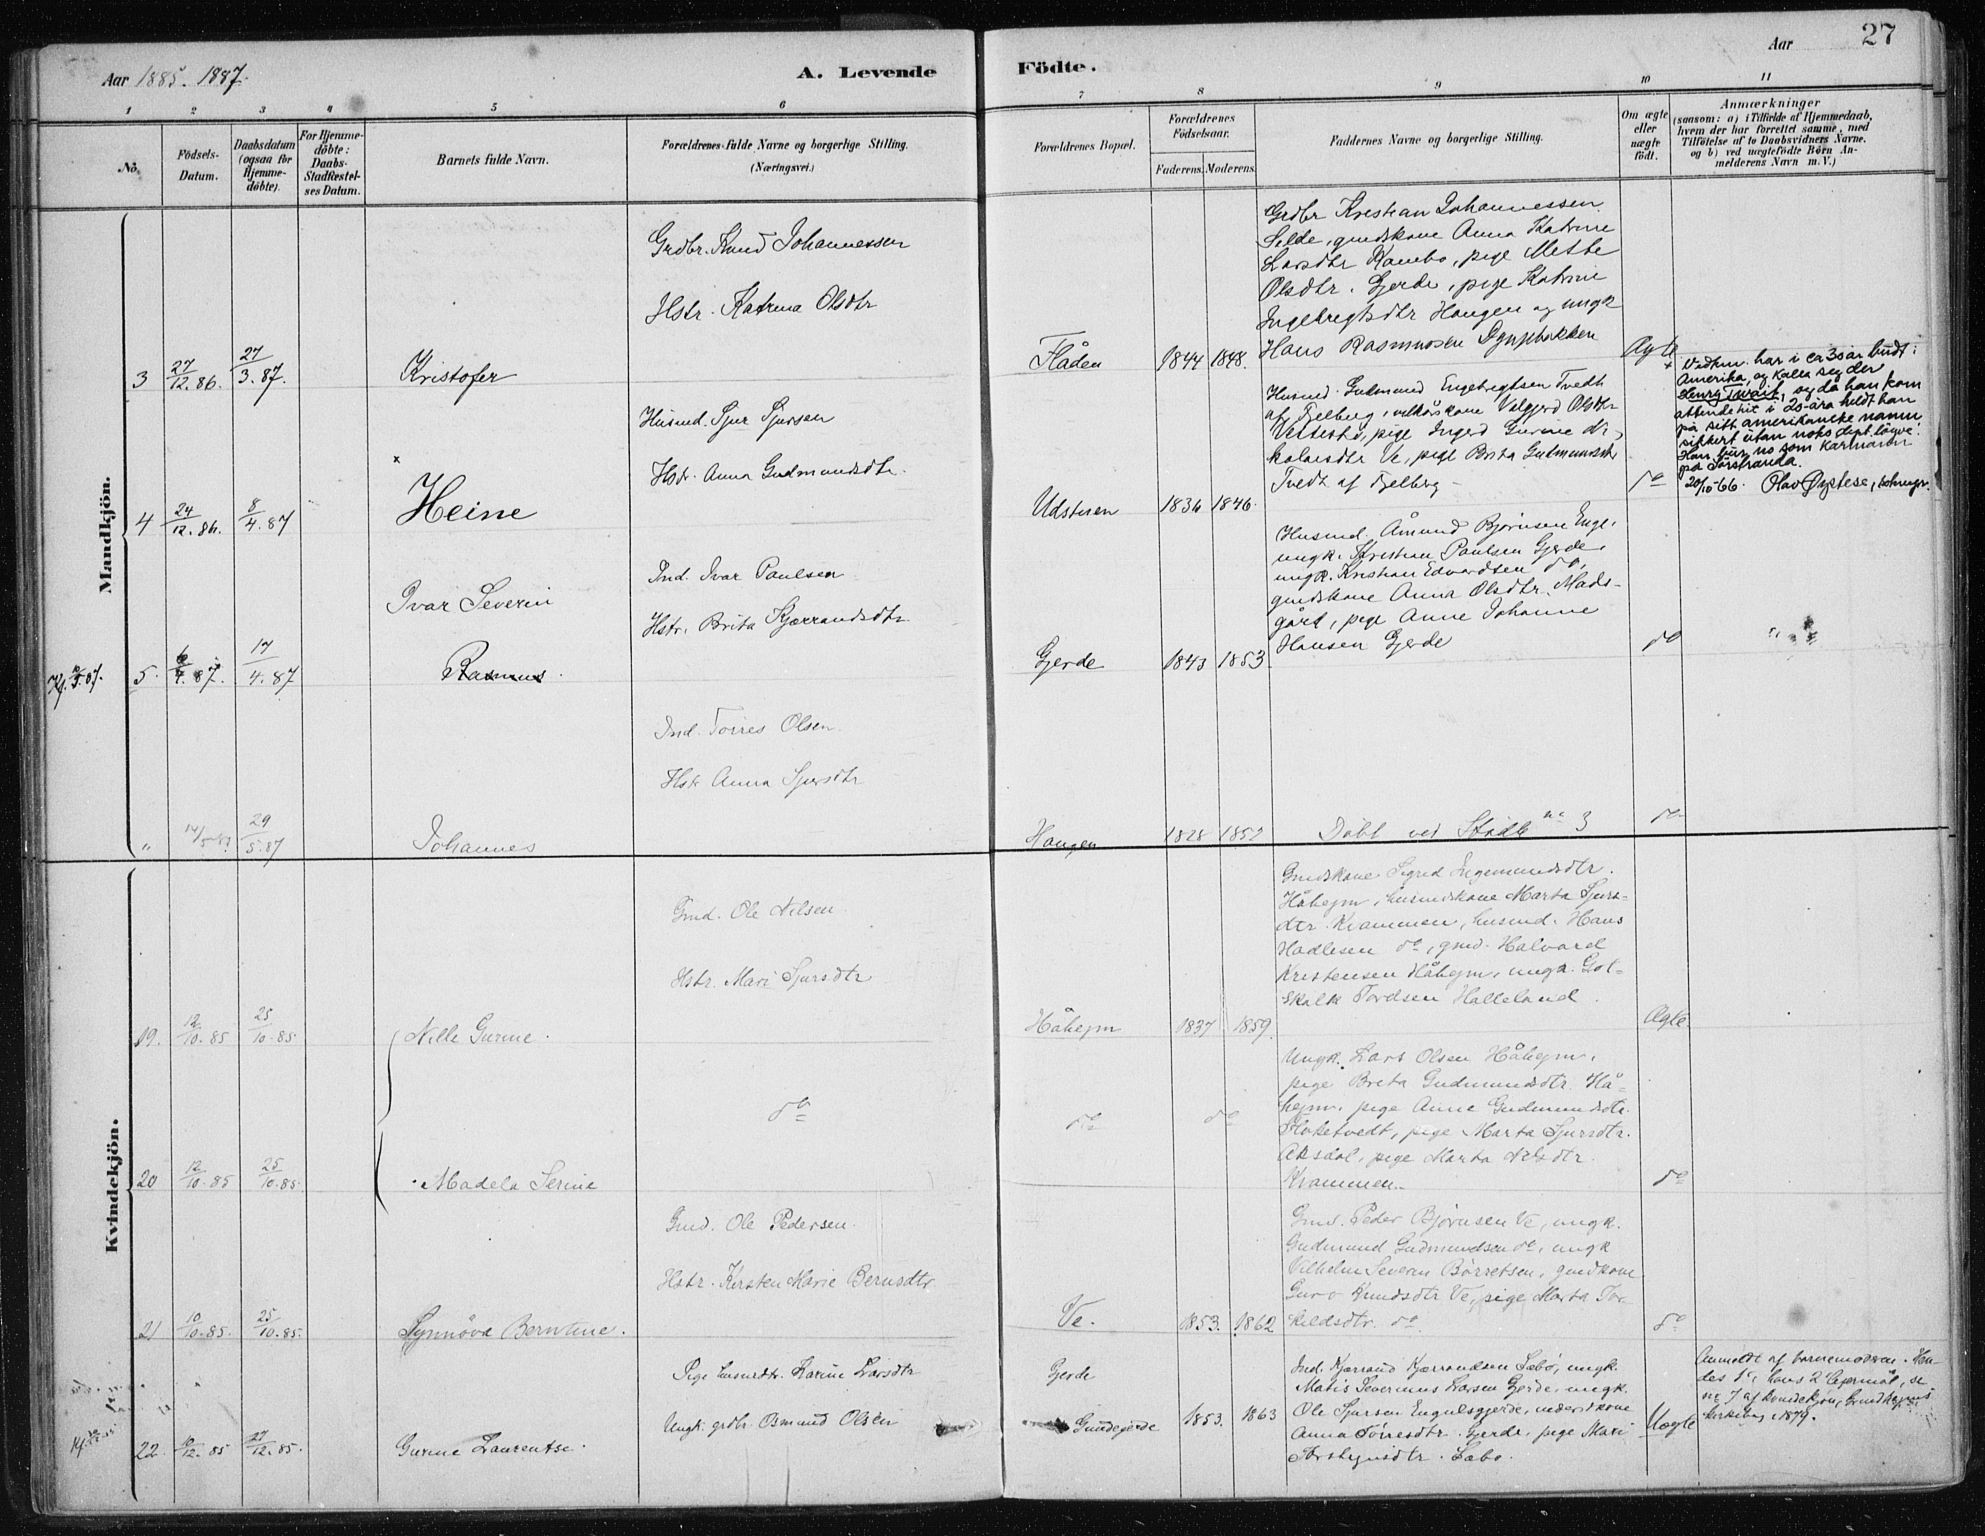 Aar 1885. 1887.
A. Levende
Födte.
Aar
27
1
2
3
4
5
6
7
8
9
10
11
No.
Födsels-
Datum.
Daabsdatum
(ogsaa for
Hjemme-
döbte).
For Hjemme-
döbte:
Daabs-
Stadfæstel-
ses Datum.
Barnets fulde Navn.
Forældrenes fulde Navne og borgerlige Stilling.
(Næringsvei.)
Forældrenes Bopæl.
Forældrenes
Födselsaar.
Faderens.
Moderens.
Faddernes Navne og borgerlige Stilling.
Om ægte
eller
uægte
födt.
Anmærkninger
(saasom: a) i Tilfælde af Hjemmedaab,
hvem der har forrettet samme, med
Tilföielse af to Daabsvidners Navne.
og b) ved uægtefödte Börn An-
melderens Navn m. V.)
Mandkjön.
3
27/12.86.
27/3.87.
Kristofer
Grdbr. Knud Johannessen
Hstr. Katrina Olsdtr
Flåden
1844
1848.
Grdbr Kristian Johannessen
Selde, gmdskone Anna Katrine
Larsdtr Rambo, pige Mette
Olsdtr. Gjerde, pige Katrine
Ingebregtsdtr Haugen og ungk
Hans Rasmussen Dynjebakken
Ægte
4
24/12.86.
8/4.87
× Heine
Husmd. Sjur Sjursen
Hstr. Anna Gudmundsdtr.
Udstuen
1836
1846.
Husmd. Gudmund Engebregtsen Tvedt
af Fjelberg, vilkårskone Valgjerd Olsdtr
Vestestø, pige Ingerd Gurine Ni-
kolaisdtr Ve, pige Brita Gudmundsdtr
Tvedt af Fjelberg
do
× Vedkm. har i ca 35 år budt i
Amerika, og kalla seg der
Henry Twait, og da han kom
attende hit i 20-åra heldt han
på sitt amerikanske namn
sikkert utan noko dept. løyve.
Han bur no som kårmann
på Sørstranda.
20/10-66. Olav Øystese, sokngr.
Kf. 87.
5.
4.87.
17/4.87
Ivar Severin
Rasmus.
Ind. Ivar Paulsen
Hstr. Brita Kjærrandsdtr
Gjerde
1843
1853
Husmd. Åmund Bjørnsen Enge,
ungk. Kristian Paulsen Gjerde,
ungk. Kristian Edvardsen do,
gmdskone Anna Olsdtr. Mads-
gård, pige Anne Johanne
Hansen Gjerde
do
"
29/5.87
Johannes
Ind. Torres Olsen
Hstr Anna Sjursdtr
Haugen
1828
Döbt ved Stödle no 3
do
Kvindekjön.
19.
12/10.85
25/10.85.
Nille Gurine.
Gmd. Ole Nilsen
Hstr. Mari Sjursdtr
Håheim
1837
1859.
Gmdskone Sigrid Ingemundsdtr.
Håhejm, husmdskone Marta Sjurs-
dtr Krammen, husmd. Hans
Hadlesen do, gmd. Halvard
Kristensen Håhejm, ungk. Got-
skalk Tordsen Halleland.
Ægte
20
12/10.85
25/10.85.
Madela Serine
do
do
do
Ungk. Lars Olsen Håhejm,
pige Brita Gudmundsdtr. Hå-
hejm, pige Anne Gudmundsdtr.
Floketvedt, pige Marta Sjursdtr.
Aksdal, pige Marta Nilsdtr.
Krammen.
do
21
10/10.85.
25/10.85.
Synnöva Berntine.
Gmd. Ole Pedersen.
Hstr. Kirsten Marie Berntsdtr
Ve.
1853.
1862
Gmd. Peder Bjørnsen Ve, ungk.
Gudmund Gudmundsen do, ungk
Vilhelm Severin Børretsen, gmdkone
Guro Knudsdtr Ve, pige Marta Tor-
kildsdtr. do
do
22.
12.85
27/12.85.
Gurine Laurentse.
Pige husmdtr. Karine Larsdtr
Ungk. grdbr. Osmund Olsen
Gjerde
Gundegjerde
1853.
1863
Ind. Kjærrand Kjærrandsen Sæbø, ungk.
Matis Severinus Larsen Gjerde, ungk.
Ole Sjursen Engelsgjerde, inderstkone
Anna Torresdtr. Gjerde, pige Mari
Torsteinsdtr. Sæbø.
Uægte
Anmeldt af barnemoderen. Hen-
des 1ste, hans 2 lejermål, se
no 7 af kvindekjøn,
kirkebog, 1879.